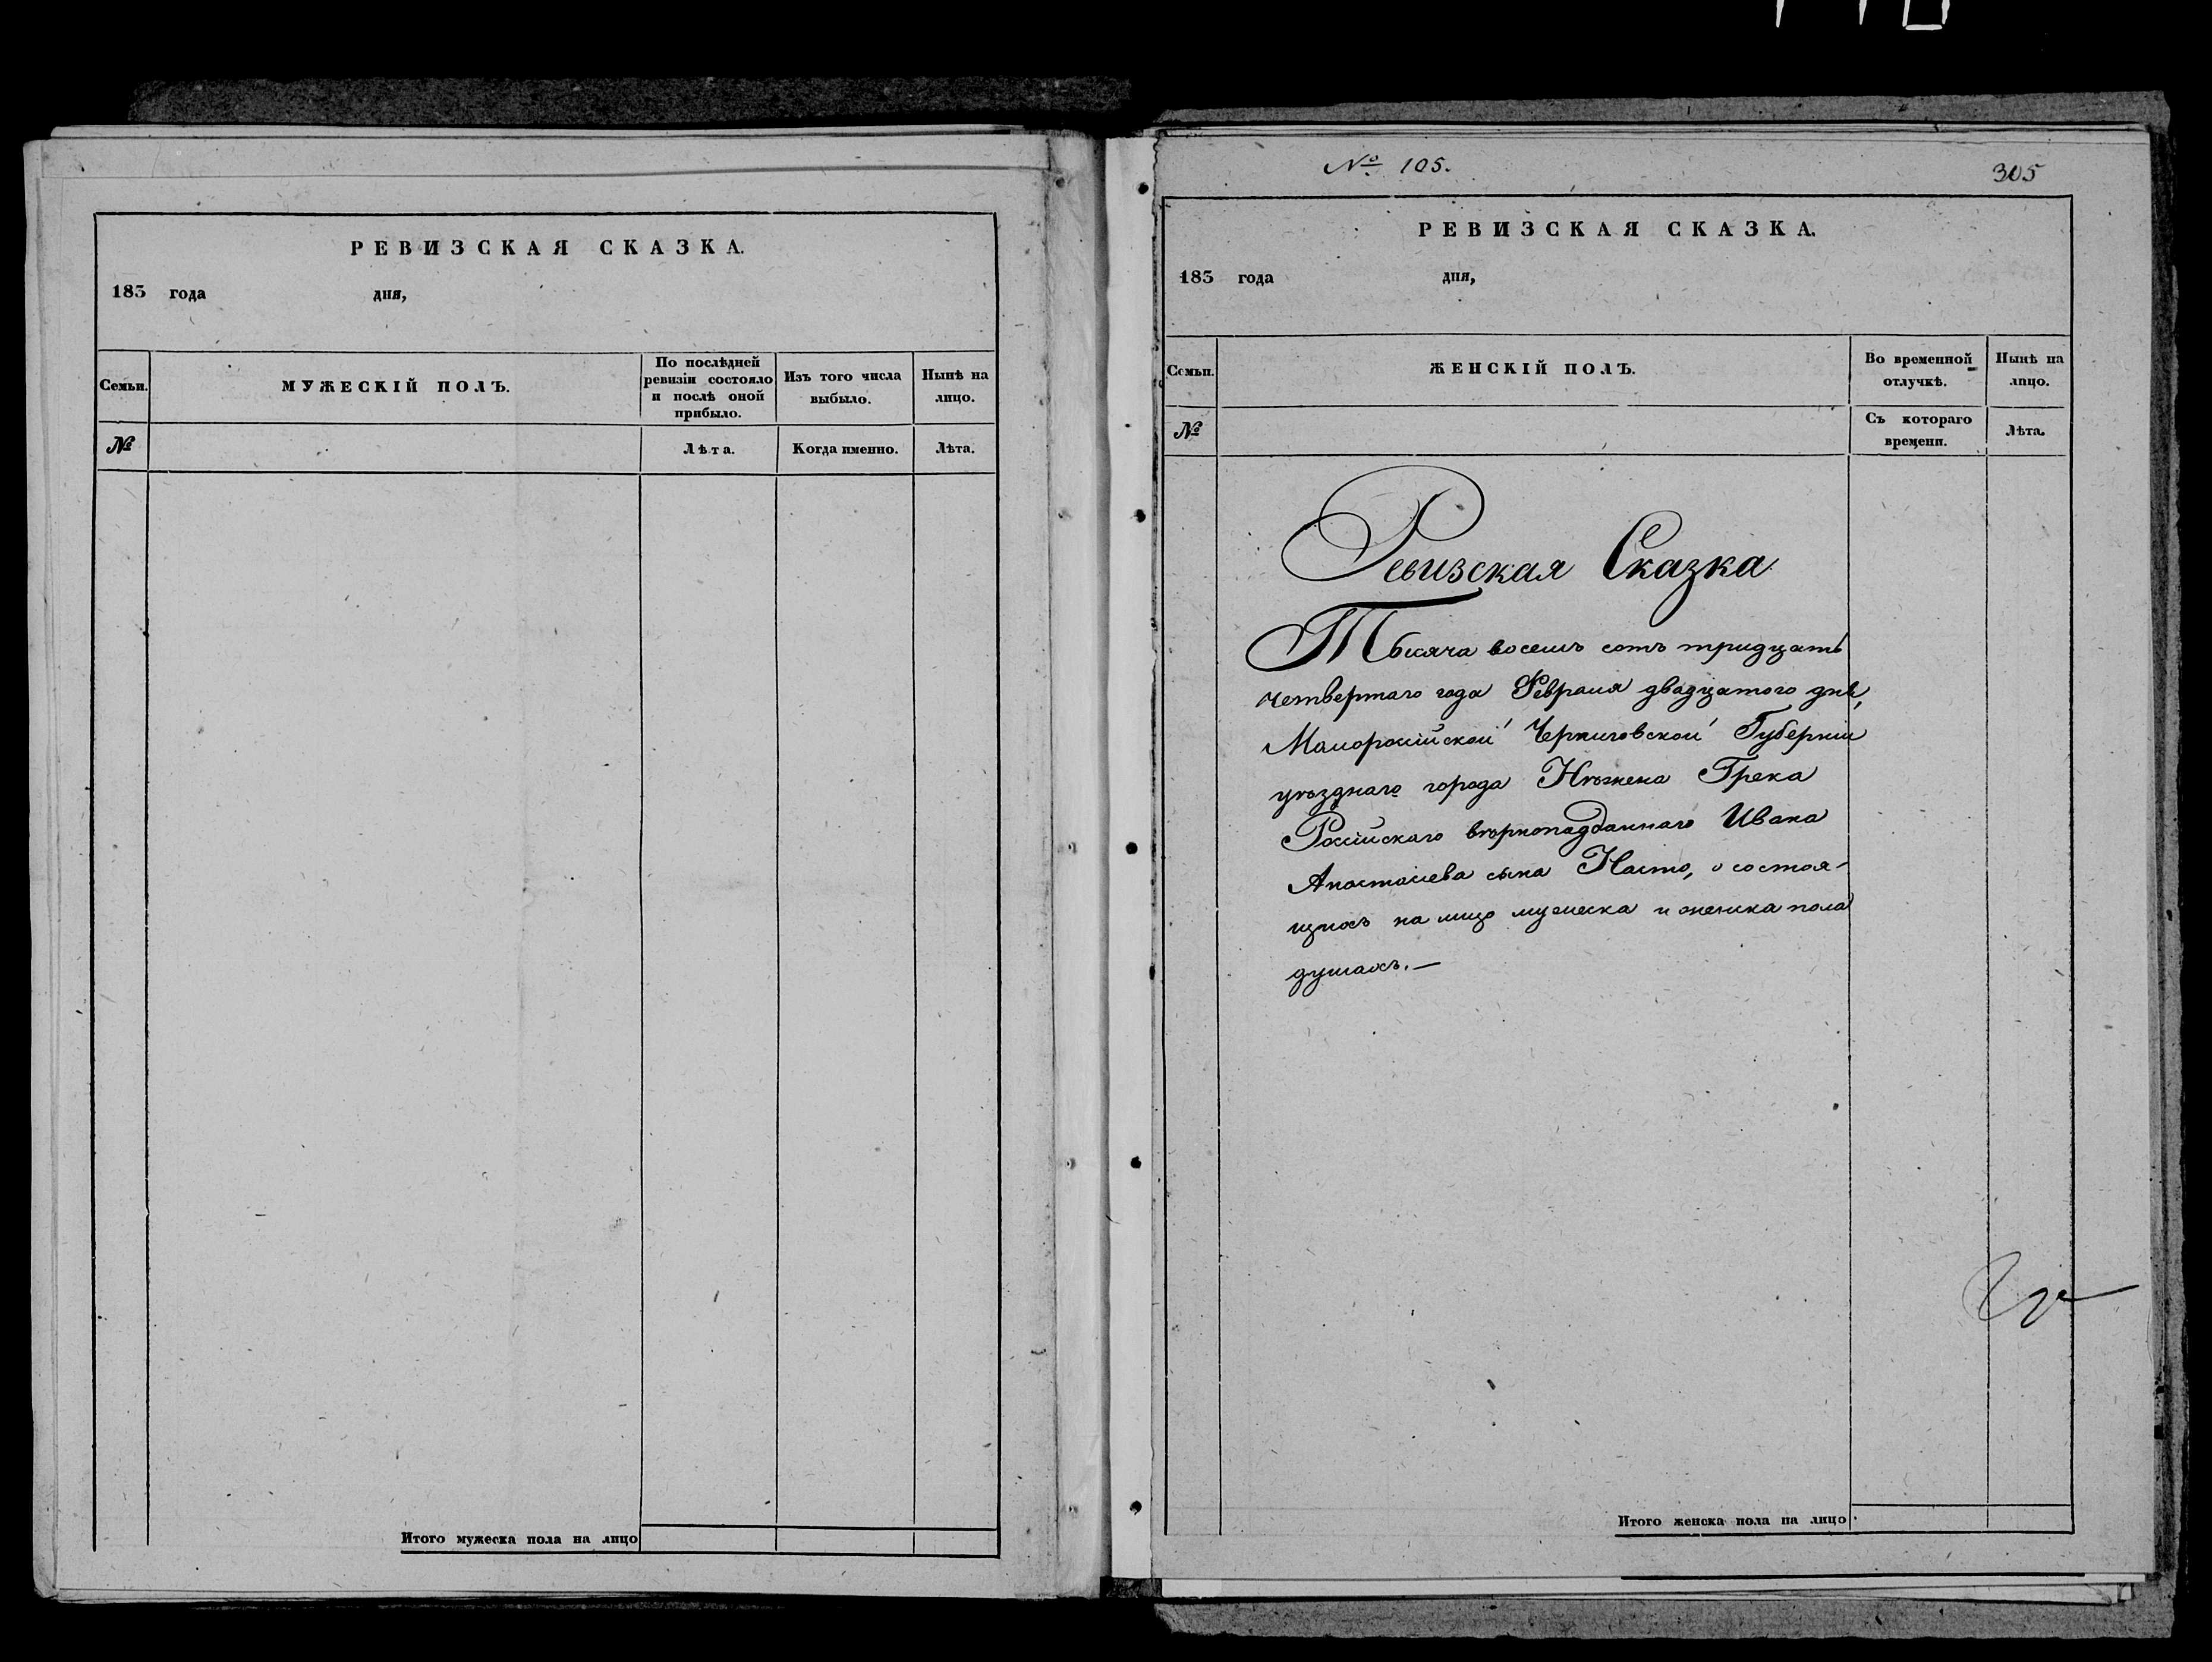 РЕВИЗСКАЯ СКАЗКА.
183 года дня,
Семьи.
МУЖЕСКІЙ ПОЛЪ.
По послѣдней
ревизіи состояло
и послѣ оной
прибыло.
Изъ того числа
выбыло.
Нынѣ на
лицо.
№
Лѣта.
Когда именно.
Лѣта.
Итого мужеска пола на лицо
№ 105.
305
РЕВИЗСКАЯ СКАЗКА.
183 года дня,
Семьи.
ЖЕНСКІЙ ПОЛЪ.
Во временной
отлучкѣ.
Нынѣ на
лицо.
№
Съ котораго
времени.
Лѣта.
Ревизская Сказка
Тысяча восемъ сотъ тридцать
четвертаго года Февраля двадцатого дня,
Малоросійской Черниговской Губерніи
уѣзднаго города Нѣжена Грека
Російскаго вѣрноподданнаго Ивана
Анастасіева сына Насто, о состоя-
щихъ на лицо мужеска и женска пола
душахъ.—
Итого женска пола на лицо